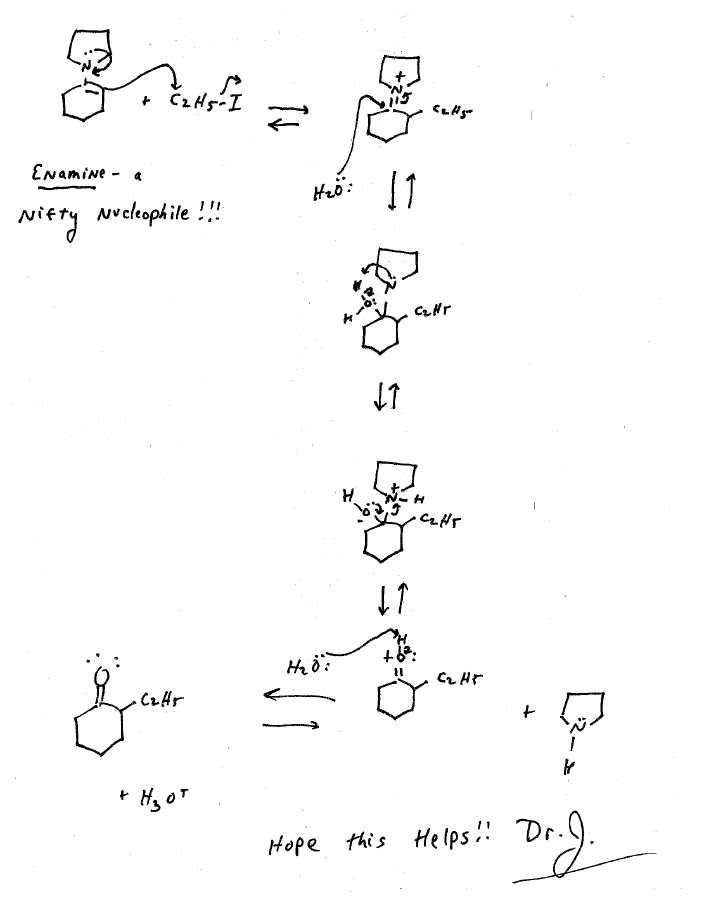 N
+ C2H5-I
+
N
C2H5
H2O:
Enamine - a
Nifty Nucleophile!!!
N
H
H O:
C2H5
+
H N-H
O
C2H5
H2O:
H
+O:
C2H5
O
C2H5
+ N
H
+ H3O+
Hope this Helps!! Dr. J.